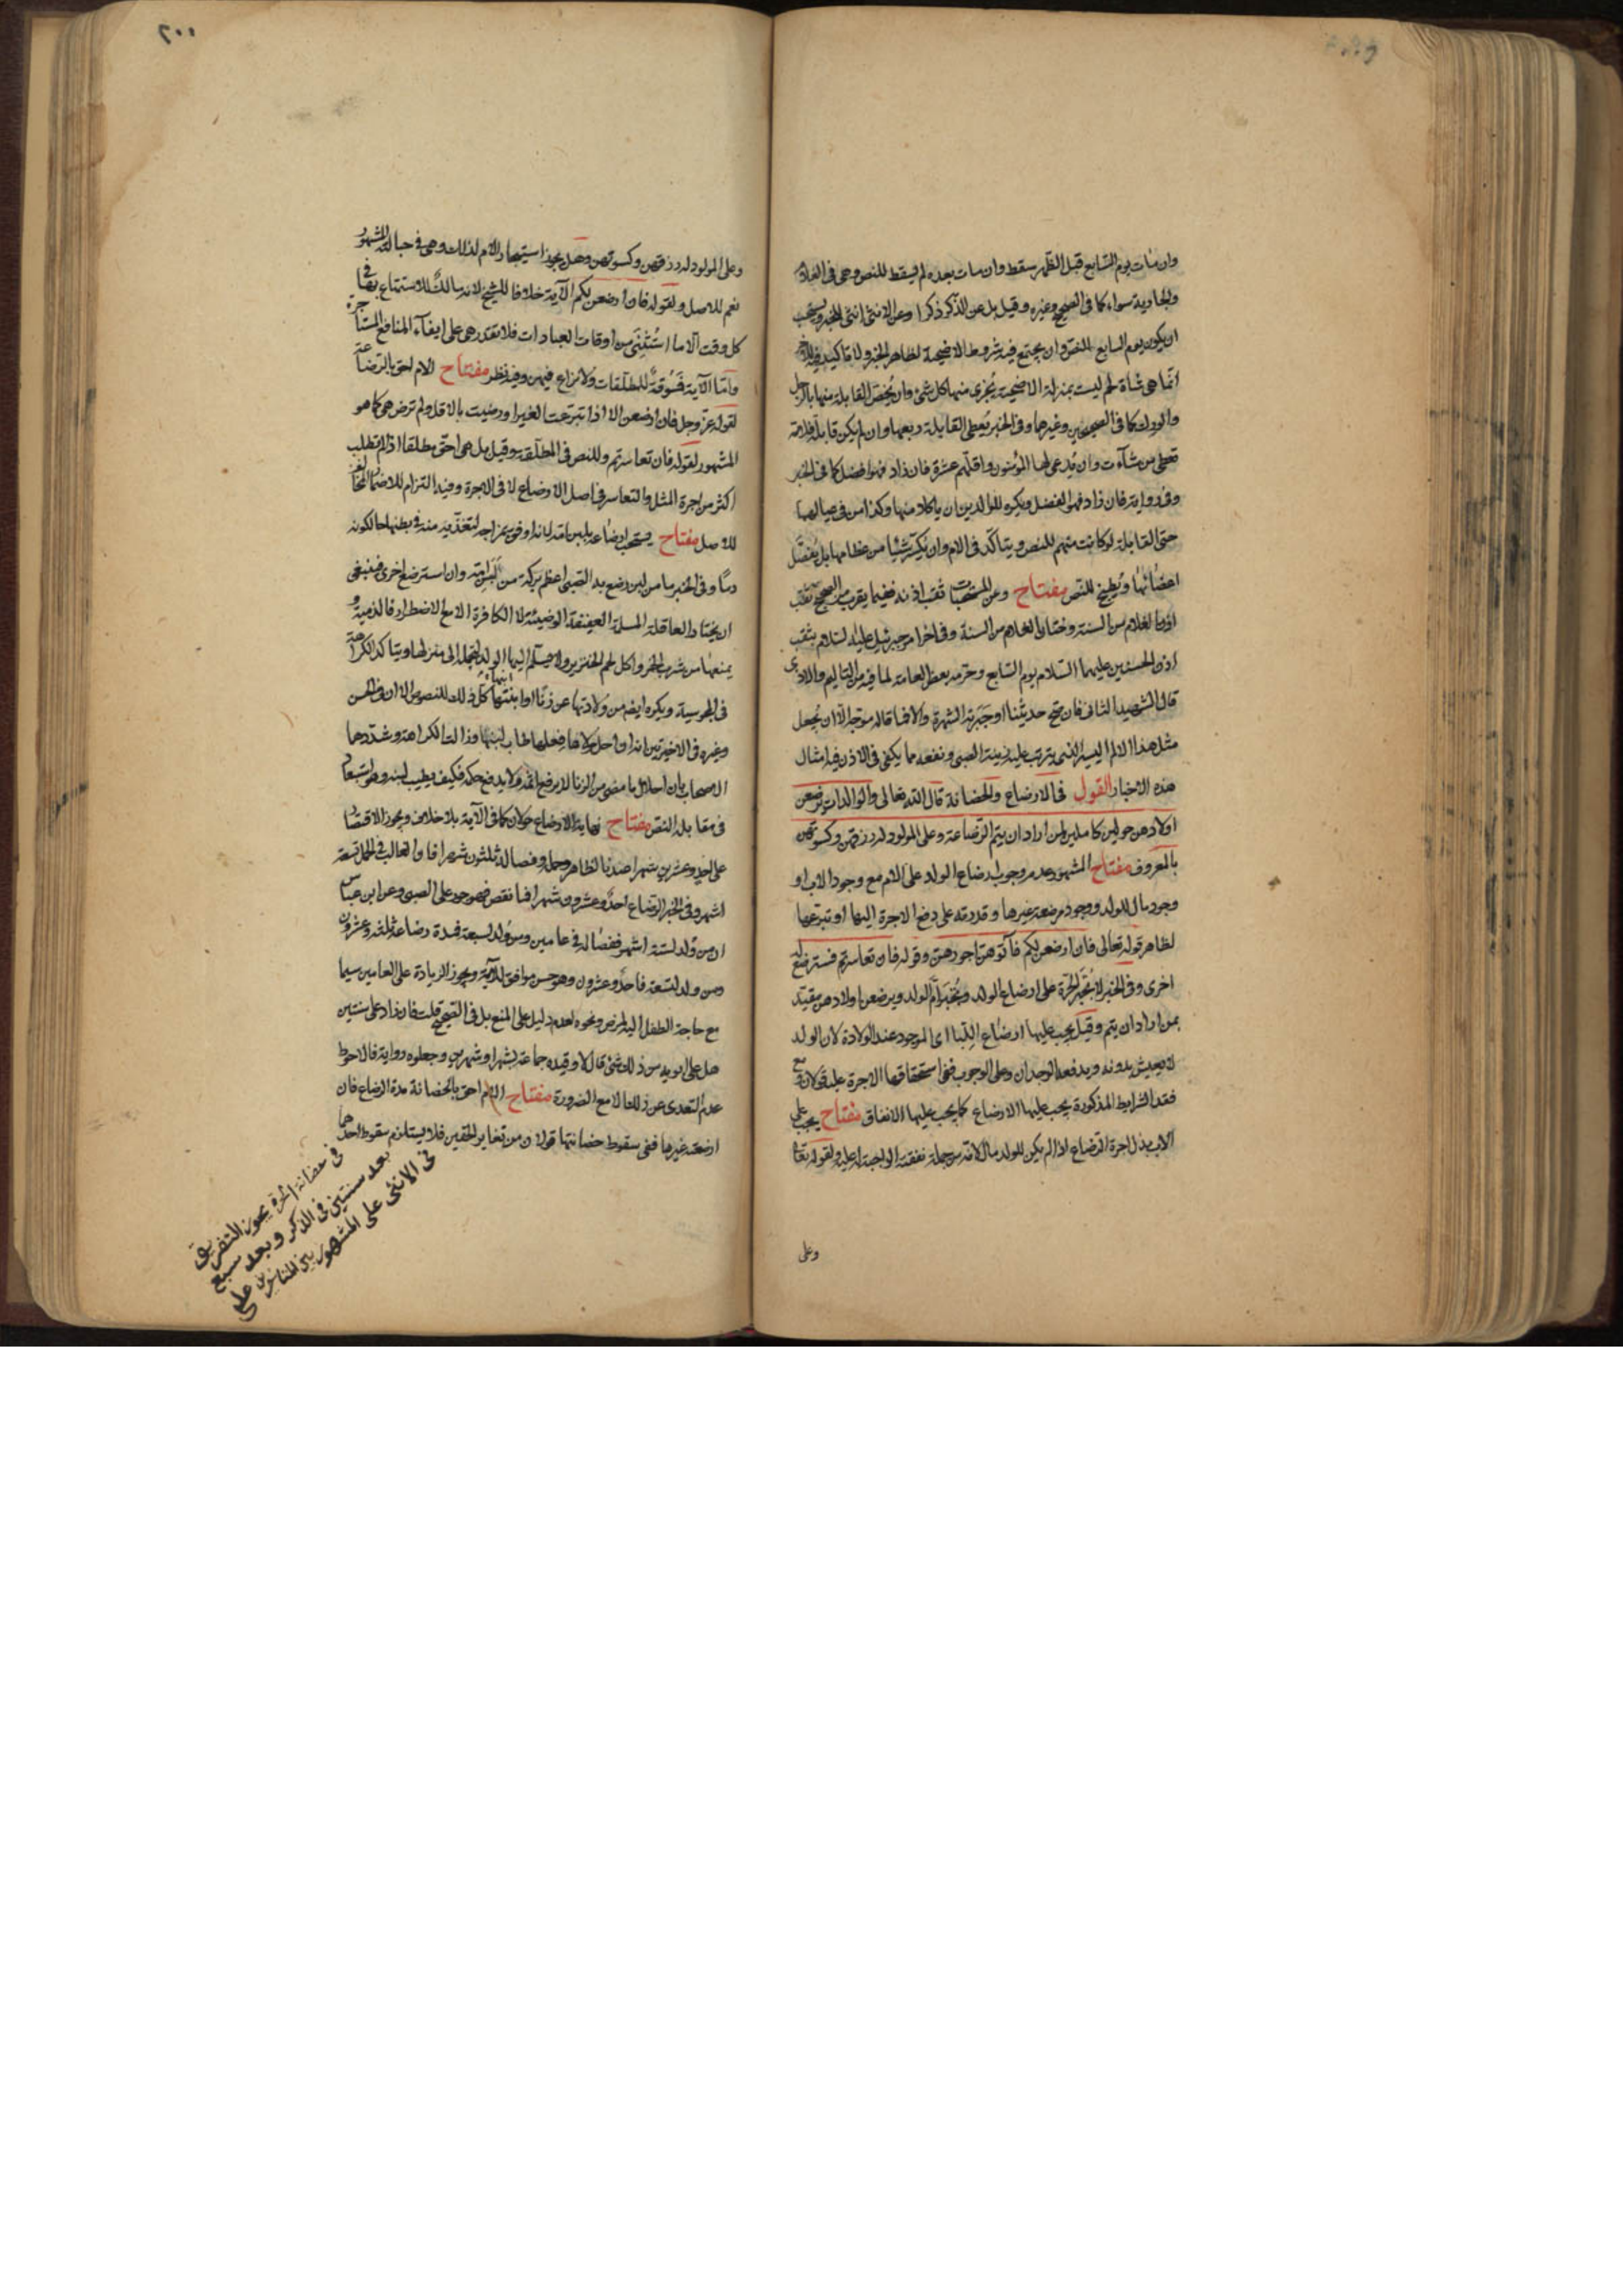 وان مات يوم السابع قبل الظهر سقط وان مات بعده لم يسقط للنص وهى فى الغلام
والجارية سواء كما فى الصحيح وغيره وقيل بل عن الذكر ذكرا وعن الانثى انثى للخبر ويستحب
ان يكون يوم السابع للنص وان يجتمع فيه شروط الاضحية لظاهر الخبر ولا تأكيد فيه
انما هى شاة لحم ليست بمنزلة الاضحية يجزى منها كل شئ وان يخص القابلة منها بالرجل
والورك كما فى الصحيحين وغيرهما وفى الخبر يعطى القابلة ربعها وان لم يكن قابلة فلامه
تعطى من شآءت وان يدعى لها المؤمنون واقلهم عشرة فان زاد فهو افضل كما فى الخبر
وفى رواية فان زاد فهو افضل ويكره للوالدين ان ياكلا منها وكذا من فى عيالهما
حتى القابلة لو كانت منهم للنص ويتاكد فى الام وان يكسر شئيا من عظامها بل يفصل
اعضائها ويطبخ للنص مفتاح وعن المستحبات ثقب اذنه ففيما يقرب من الصحيح ثقب
اذن الغلام من السنة وختان الغلام من السنة وفى اخر امر جبرئيل عليه السلام بثقب
اذن الحسنين عليهما السلام يوم السابع وحرمه بعض العامة لما فيه من التاليم والاذى
قال الشهيد الثانى فان صح حديثنا او جبرته الشهرة والا فما قاله موجه الا ان يجعل
مثل هذا الالم اليسير الذى يترتب عليه زينة الصبى ونفعه مما يكفى فى الاذن فيه امثال
هذه الاخبار القول فى الارضاع والحضانة قال الله تعالى والوالدات يرضعن
اولادهن حولين كاملين لمن اراد ان يتم الرضاعة وعلى المولود له رزقهن وكسوتهن
بالمعروف مفتاح المشهور عدم وجوب رضاع الولد على الام مع وجود الاب او
وجود مال للولد ووجود مرضعة غيرها وقدرته على دفع الاجرة اليها او تبرعها
لظاهر قوله تعالى فان ارضعن لكم فآتوهن اجورهن وقوله فان تعاسرتم فسترضع له
اخرى وفى الخبر لا تجبر الحرة على ارضاع الولد وتجبر ام الولد ويرضعن اولادهن مقيد
بمن اراد ان يتم وقيل يجب عليها ارضاع اللبا اى الموجود عند الولادة لان الولد
لا يعيش بدونه ويدفعه الوجدان وعلى الوجوب ففى استحقاقها الاجرة عليه قولان ومع
فقد الشرايط المذكورة يجب عليها الارضاع كما يجب عليها الانفاق مفتاح يجب على
الاب بذل اجرة الرضاع اذا لم يكن للولد مال لانه من جملة نفقته الواجبة عليه ولقوله تعالى
وعلى
٢٠٠
وعلى المولود له رزقهن وكسوتهن وهل يجوز استيجار الام لذلك وهى فى حباله المشهور
نعم للاصل ولقوله فان ارضعن لكم الآية خلافا للشيخ لانه مالك للاستمتاع بها فى
كل وقت الا ما استثنى من اوقات العبادات فلا تقدر هى على ايفآء المنافع المستأجرة
واما الآية فمسوقة للمطلقات ولا نزاع فيهن وفيه نظر مفتاح الام احق بالرضاعة
لقوله عز وجل فان ارضعن الا اذا تبرعت الغير او رضيت بالاقل ولم ترض هى كما هو
المشهور لقوله فان تعاسرتم وللنص فى المطلقة وقيل بل هى احق مطلقا اذا لم تطلب
اكثر من اجرة المثل والتعاسر فى اصل الارضاع لا فى الاجرة وفيه التزام للاضمار المخالف
للاصل مفتاح يستحب ارضاعه بلبن امه لانه اوفق بمزاجه لتغذيه منه فى بطنها حالكونه
دما وفى الخبر ما من لبن رضع به الصبى اعظم بركة من لبن امه وان استرضع اخرى فينبغى
ان يختار العاقلة المسلمة العفيفة الوضيئة لا الكافرة الا مع الاضطرار فالذمية و
يمنعها من شرب الخمر واكل لحم الخنزير ولا يسلم اليها الولد لتحمله الى منزلها ويتاكد الكراهة
فى المجوسية ويكره ايضا من ولادتها عن زنا او ابنتها كل ذلك للنصوص الا ان فى الحسن
وغيره فى الاخيرتين انه لو احل مولاها فعلها طاب لبنها وزالت الكراهة وشدده
الاصحاب بان احلال ما مضى من الزنا لا يرفع اثمه ولا يدفع حكمه فكيف يطيب لبنه وهو استبعاد
فى مقابلة النص مفتاح نهاية الارضاع حولان كما فى الآية بلا خلاف ويجوز الاقتصار
على احد وعشرين شهرا عندنا لظاهر وحمله وفصاله ثلثون شهرا فان الغالب فى الحمل تسعة
اشهر وفى الخبر الرضاع احد وعشرون شهرا فما نقص فهو جور على الصبى وعن ابن عباس
ان من ولد لستة اشهر ففصاله فى عامين ومن ولد لسبعة فمدة رضاعه ثلثة وعشرون
ومن ولد لتسعة فاحد وعشرون وهو حسن موافق للآية ويجوز الزيادة على العامين سيما
مع حاجة الطفل اليه لمرض ونحوه لعدم دليل على المنع بل فى الصحيح قلت فان زاد على سنتين
هل على ابويه من ذلك شئ قال لا وقيده جماعة بشهر او شهرين وجعلوه رواية فالاحوط
عدم التعدى عن ذلك الا مع الضرورة مفتاح الام احق بالحضانة مدة الرضاع فان
ارضعته غيرها ففى سقوط حضانتها قولان من تغاير الحقين فلا يستلزم سقوط احدهما
فى حضانة الحرة يجوز التفريق
بعد سنتين فى الذكر وبعد سبع
فى الانثى على المشهور بين المتأخرين على